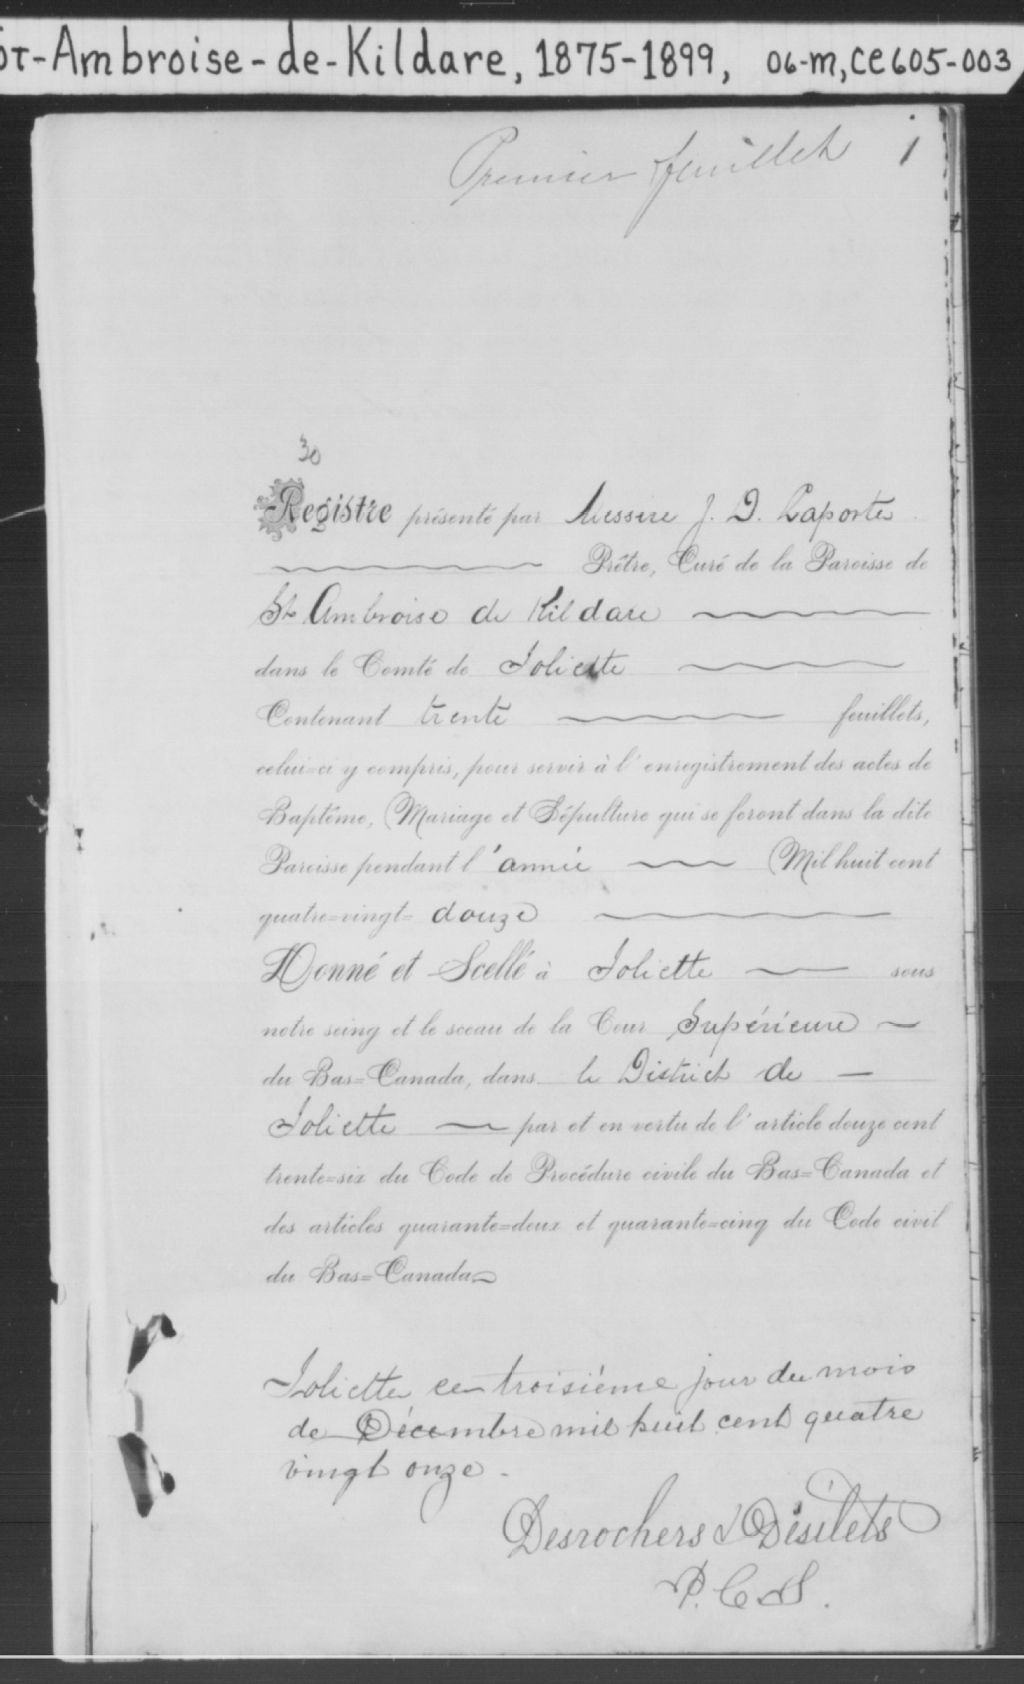 St-Ambroise-de-Kildare, 1875-1899, 06-M, CE605-003
Premier feuillet 1
30
Registre présenté par Messire J. D. Laporte
Prêtre, Curé de la Paroisse de
St Ambroise de Kildare
dans le Comté de Joliette
Contenant trente feuillets,
celui=ci y compris, pour servir à l'enregistrement des actes de
Baptême, Mariage et Sépulture qui se feront dans la dite
Paroisse pendant l'année Mil huit cent
quatre=vingt= douze
Donné et Scellé à Joliette sous
notre seing et le sceau de la Cour Supérieure
du Bas=Canada, dans le District de
Joliette par et en vertu de l'article douze cent
trente=six du Code de Procédure civile du Bas=Canada et
des articles quarante=deux et quarante=cinq du Code civil
du Bas=Canada
Joliette ce troisième jour du mois
de Décembre mil huit cent quatre
vingt onze.
Desrochers & Désilets
P. C. S.